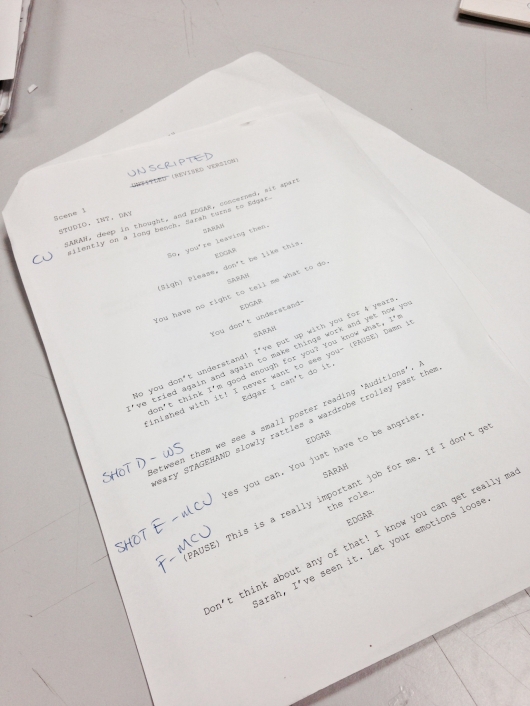 UNSCRIPTED
UNTITLED (REVISED VERSION)
Scene 1
STUDIO. INT. DAY
CU
SARAH, deep in thought, and EDGAR, concerned, sit apart
silently on a long bench. Sarah turns to Edgar…
SARAH
So, you're leaving then.
EDGAR
(Sigh) Please, don't be like this.
SARAH
You have no right to tell me what to do.
EDGAR
You don't understand-
SARAH
No you don't understand! I've put up with you for 4 years.
I've tried again and again to make things work and yet now you
don't think I'm good enough for you? You know what, I'm
finished with it! I never want to see you- (PAUSE) Damn it
Edgar I can't do it.
SHOT D - WS
Between them we see a small poster reading 'Auditions'. A
weary STAGEHAND slowly rattles a wardrobe trolley past them.
EDGAR
SHOT E - MCU
Yes you can. You just have to be angrier.
SARAH
F - MCU
(PAUSE) This is a really important job for me. If I don't get
the role…
EDGAR
Don't think about any of that! I know you can get really mad
Sarah, I've seen it. Let your emotions loose.